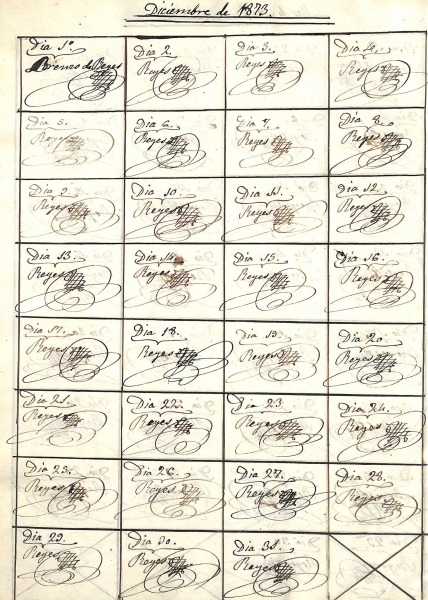 Diciembre de 1873.
Dia 1º
Lorenzo de Reyes
Dia 2.
Reyes
Dia 3.
Reyes
Dia 4.
Reyes
Dia 5.
Reyes
Dia 6.
Reyes
Dia 7.
Reyes
Dia 8.
Reyes
Dia 9.
Reyes
Dia 10.
Reyes
Dia 11.
Reyes
Dia 12.
Reyes
Dia 13.
Reyes
Dia 14.
Reyes
Dia 15.
Reyes
Dia 16.
Reyes
Dia 17.
Reyes
Dia 18.
Reyes
Dia 19.
Reyes
Dia 20.
Reyes
Dia 21.
Reyes
Dia 22.
Reyes
Dia 23.
Reyes
Dia 24.
Reyes
Dia 25.
Reyes
Dia 26.
Reyes
Dia 27.
Reyes
Dia 28.
Reyes
Dia 29.
Reyes
Dia 30.
Reyes
Dia 31.
Reyes